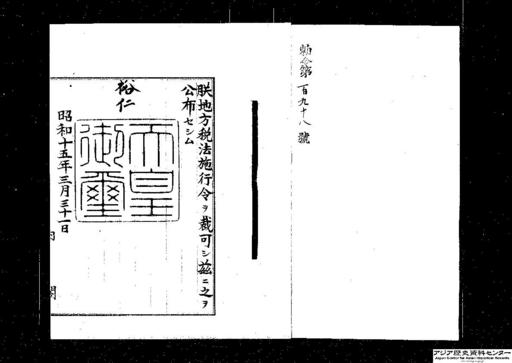 勅令第百九十八號
朕地方税法施行令ヲ裁可シ茲ニ之ヲ
公布セシム
裕仁
天皇
御璽
昭和十五年三月三十一日
内閣
アジア歴史資料センター
Japan Center for Asian Historical Records